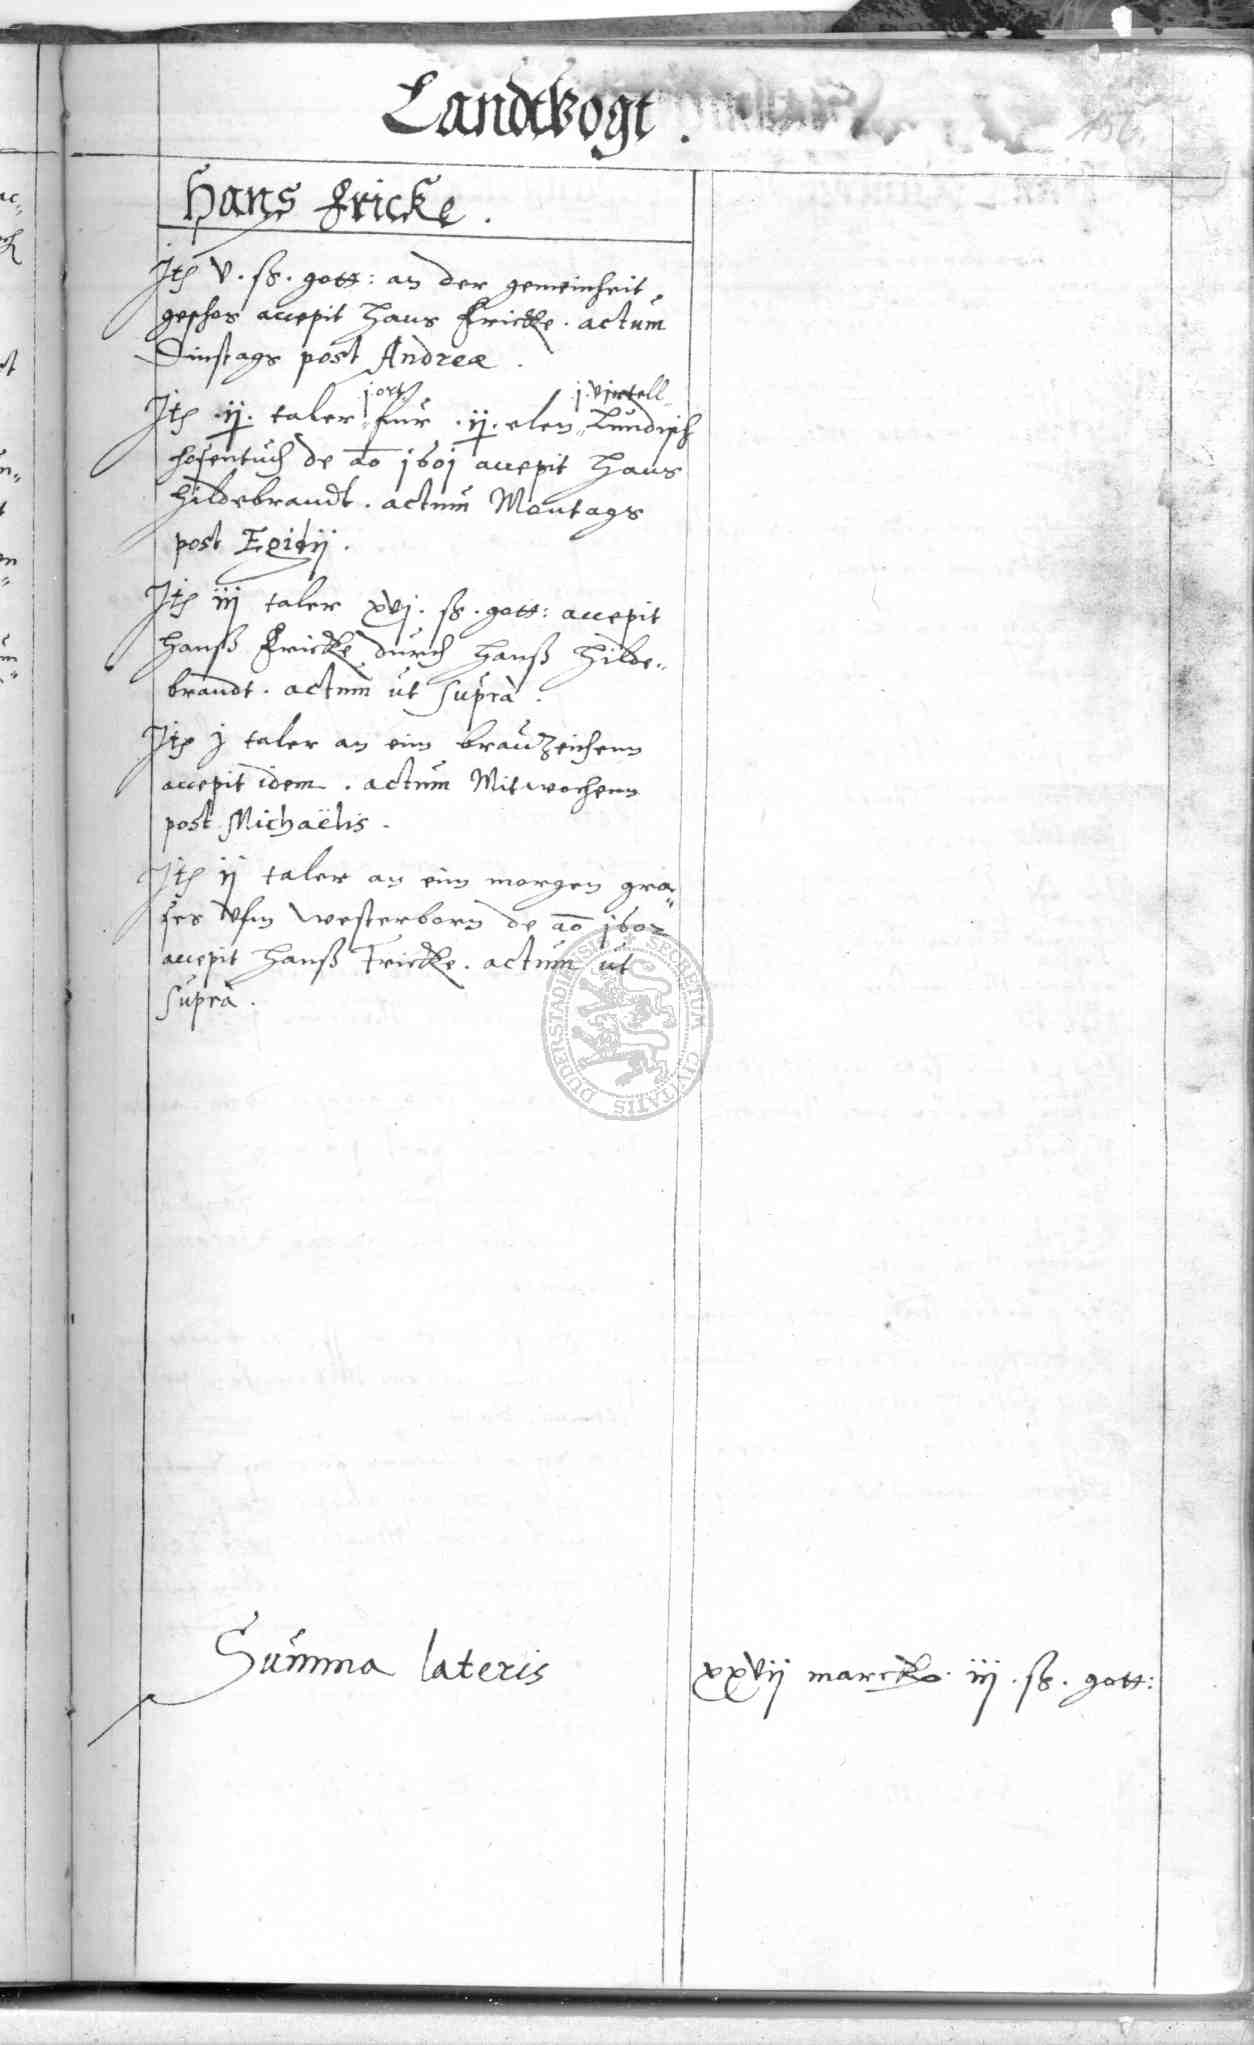 Landtvogt.
156.
Hans Fricke.
Itē v. ß. gott: an der gemeinheit
geschos accepit Hans Fricke. actum
Dinstags post Andreæ.
j ort j. virtell
Itē .ij. taler für .ij. elen Lundisch
hosentuch de ao 1601 accepit Hans
Hildebrandt. actum Montags
post Egidij.
Itē iij taler xvj. ß. gott: accepit
Hanß Fricke durch Hanß Hilde-
brandt. actum ut suprà.
Itē j taler an eim brauzeichenn
accepit idem. actum Mitwochenn
post Michaëlis.
Itē ij taler an eim morgen gra-
ses vfm Westerborn de ao 1602
accepit Hanß Fricke. actum ut
suprà.
SECRETUM CIVITATIS DUDERSTADIENSIS
Summa lateris xxvij marck iij. ß. gott: